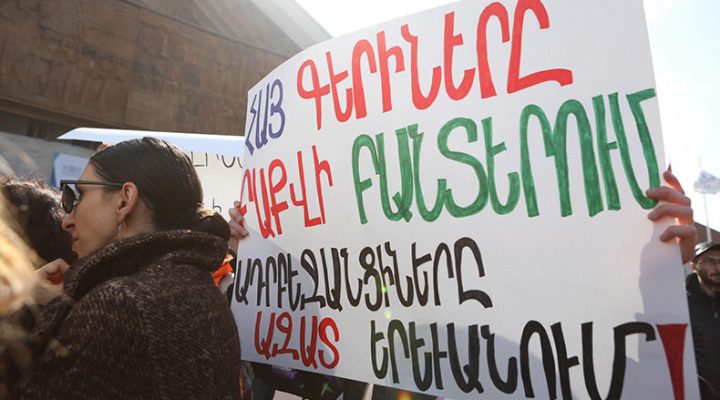 ՀԱՅ ԳԵՐԻՆԵՐԸ
ԲԱՔՎԻ ԲԱՆՏԵՐՈՒՄ
ԱԴՐԲԵՋԱՆՑԻՆԵՐԸ
ԱԶԱՏ ԵՐԵՎԱՆՈՒՄ!